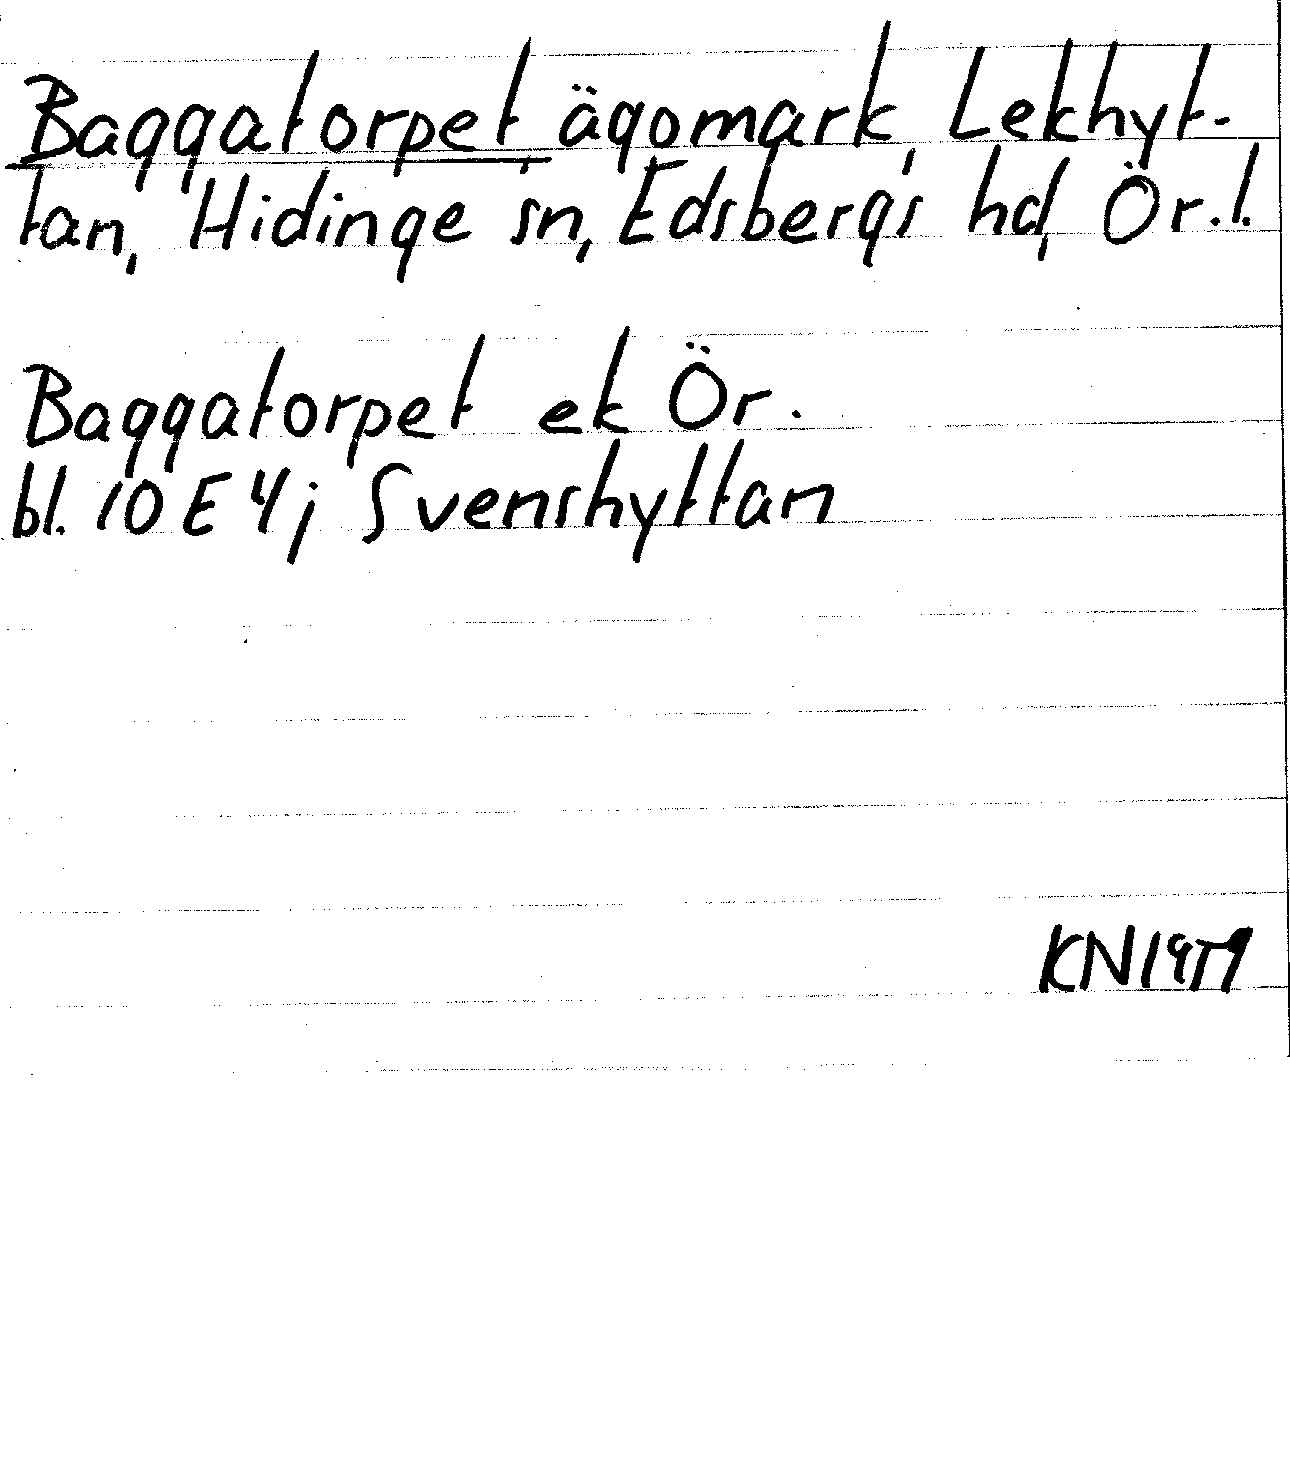 Baggatorpet, ägomark, Lekhyt-
tan, Hidinge sn, Edsbergs hd, Ör.l.
Baggatorpet ek Ör.
bl. 10 E 4j Svenshyttan